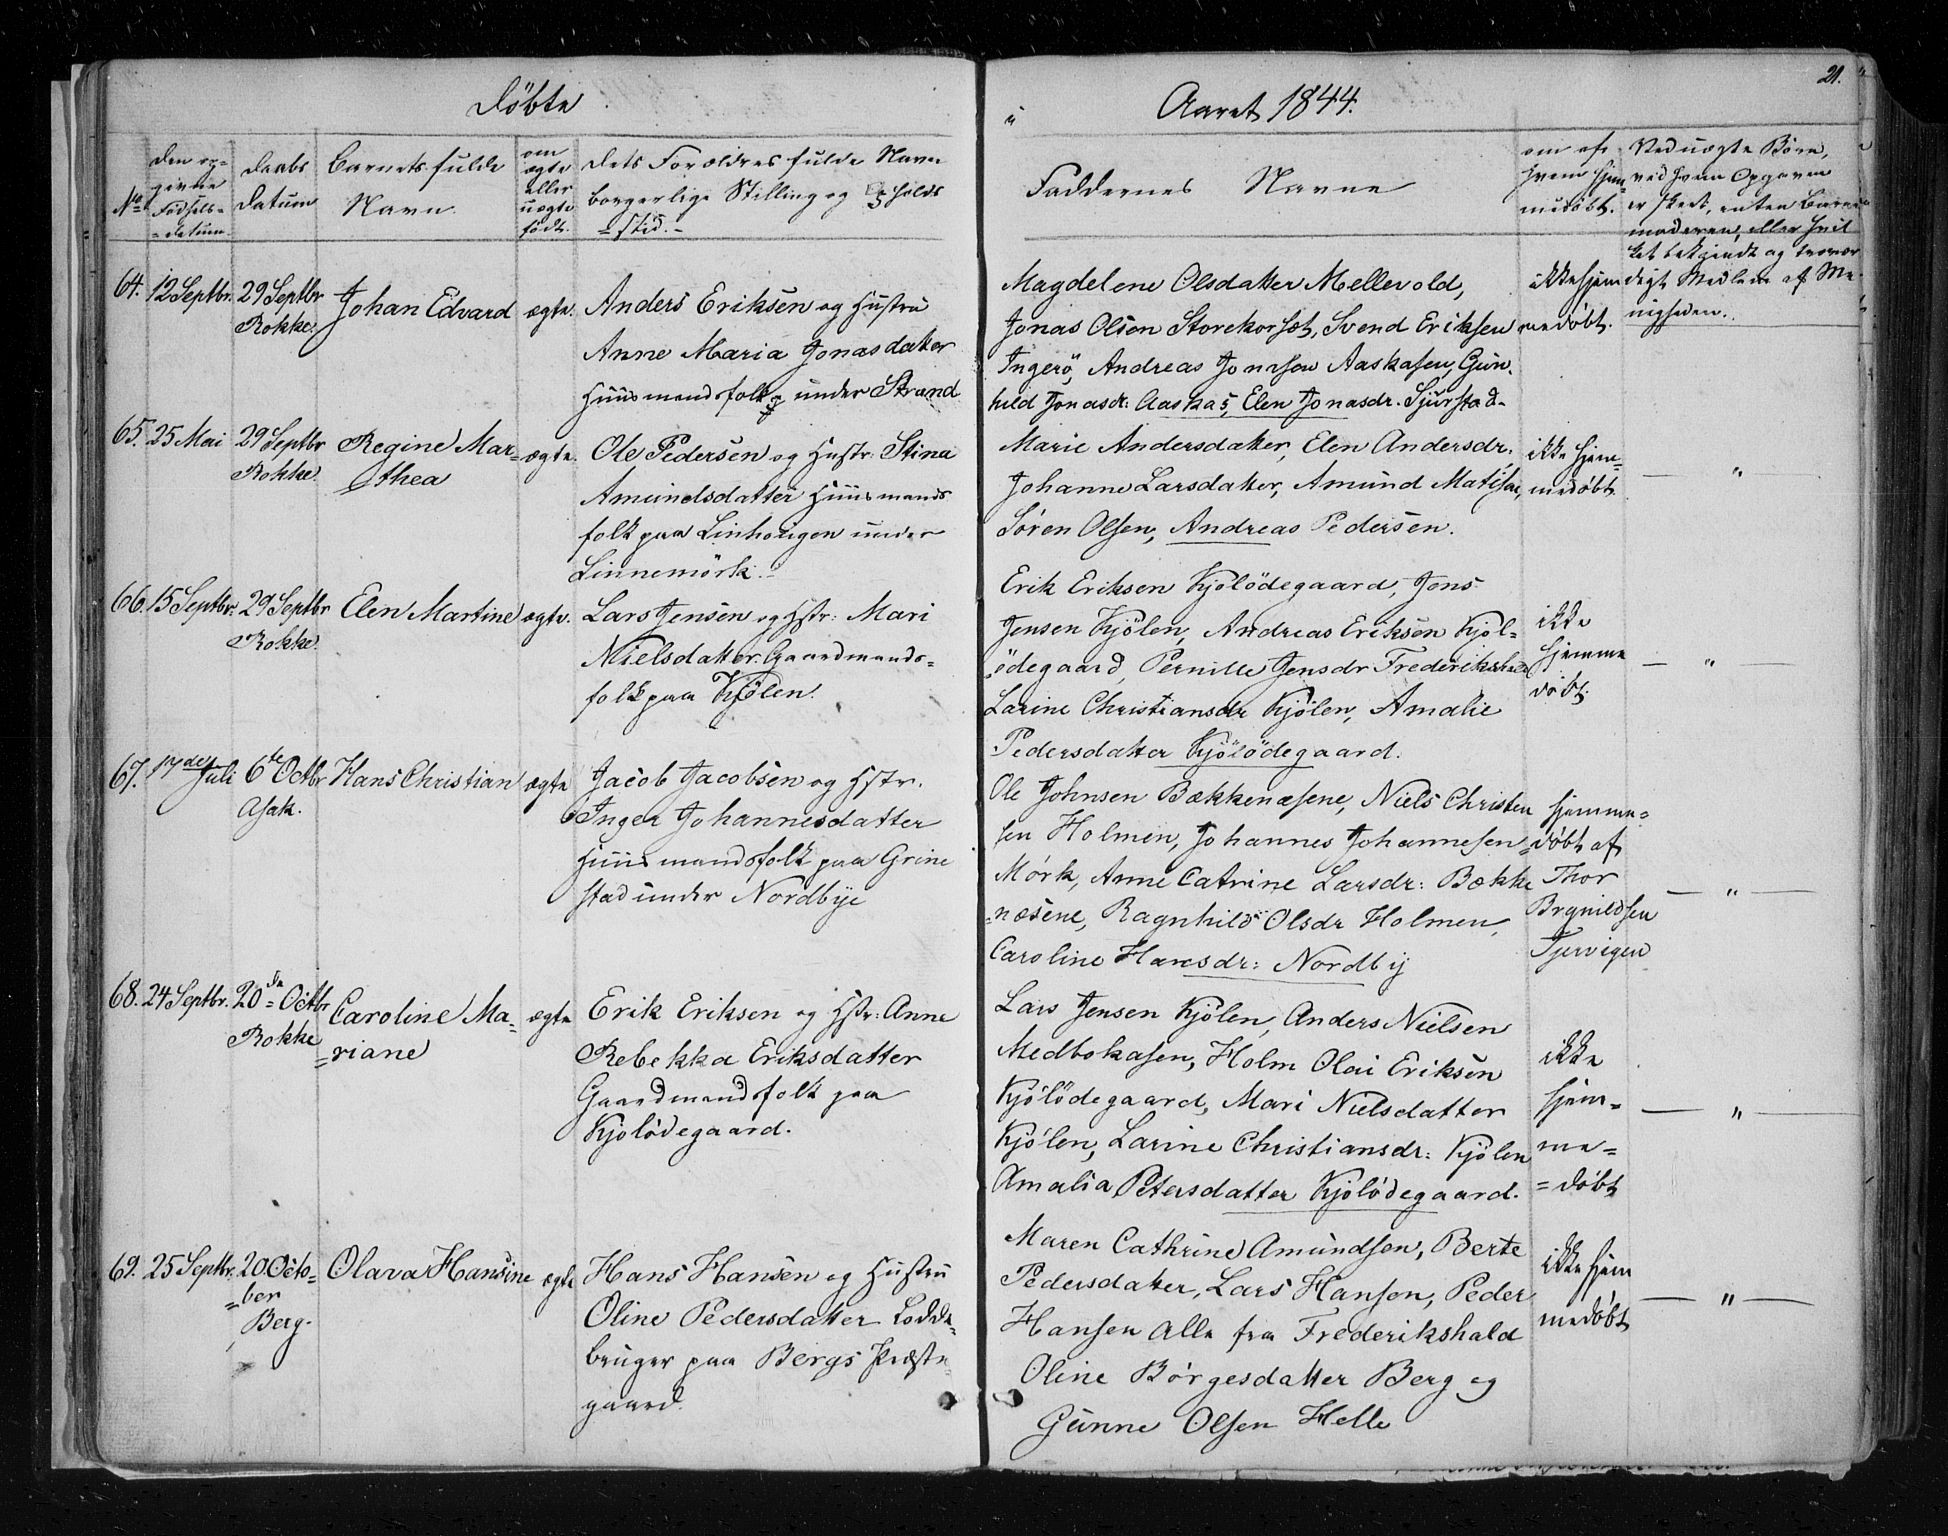 Döbte
i Aaret 1844.
21.
No
den op-
givne
Fødsels-
datum.
daabs
datum
Barnets fulde
Navn.
om
ægte
eller
uægte
født.
dets Forældres fulde Navn
borgerlige Stilling og Opholds
=sted.-
Faddernes Navne
om af
hvem hjem-
medøbt.
Ved uægte Börn,
ved hvem Opgaven
er skeet, enten Barne
moderen, eller hvil
ket bekjendt og trovær
digt Medlem af Me-
nigheden.
64. 12 Septbr. 29 Septbr
Rokke.
Johan Edvard
ægte.
Anders Eriksen og Hustru
Anne Maria Jonasdatter
Huusmandsfolk under Strand
Magdelene Olsdatter Mellevold,
Jonas Olsen Storekorset, Svend Eriksen
Ingerö, Andreas Jonasen Aaskasen, Gun-
hild Jonasdr: Aaskas, Elen Jonasdr. Sjurstad-
ikke hjem
medøbt.
65. 25 Mai 29 Septbr
Rokke.
Regine Mar=
thea
ægte.
Ole Pedersen og Hustr: Stina
Amundsdatter Huusmands
folk paa Linhougen under
Linnemörk.
Marie Andersdatter, Elen Andersdr.
Johanne Larsdatter, Amund Matisen,
Sören Olsen, Andreas Pedersen.
ikke hjem=
medøbt.
— " —
66. 15 Septbr. 29 Septbr
Rokke.
Elen Martine
ægte.
Lars Jensen og Hstr: Mari
Nielsdatter Gaardmands=
folk paa Kjölen.
Erik Eriksen Kjölödegaard, Jens
Jensen Kjölen, Andreas Eriksen Kjöl=
ödegaard, Pernille Jensdr Frederikshald
Larine Christiansdr Kjölen, Amalie
Pedersdatter Kjölödegaard.
ikke
hjemme
døbt.
— " —
67. 17des Juli 6te Octbr
Asak.
Hans Christian
ægte
Jacob Jacobsen og Hstr.
Inger Johannesdatter
Huusmandsfolk paa Grine
stad under Nordbye
Ole Johnsen Bækkenæsene, Niels Christen
sen Holmen, Johannes Johannesen
Mörk, Anne Catrine Larsdr: Bække
=næsene, Ragnhild Olsdr Holmen,
Caroline Hansdr: Nordby
hjemme=
=døbt af
Thor
Brynildsen
Tjervigen
— " —
68. 24 Septbr. 20de Octbr
Rokke
Caroline Ma=
=riane
ægte
Erik Eriksen og Hstr: Anne
Rebekka Eriksdatter
Gaardmandsfolk paa
Kjolödegaard.
Lars Jensen Kjölen, Anders Nielsen
Medbokasen, Holm Olai Eriksen
Kjölödegaard, Mari Nielsdatter
Kjölen, Larine Christiansdr: Kjölen
Amalia Petersdatter Kjölödegaard.
ikke
hjem=
me=
=døbt
— " —
69. 25 Septbr. 20 Octo=
=ber
Berg.
Olava Hansine
ægte
Hans Hansen og Hustru
Oline Pedersdatter Lodds=
bruger paa Bergs Præste
gaard.
Maren Cathrine Amundsen, Berte
Pedersdatter, Lars Hansen, Peder
Hansen alle fra Frederikshald
Oline Börgesdatter Berg og
Gunne Olsen Helle
ikke hjem
medøbt
— " —